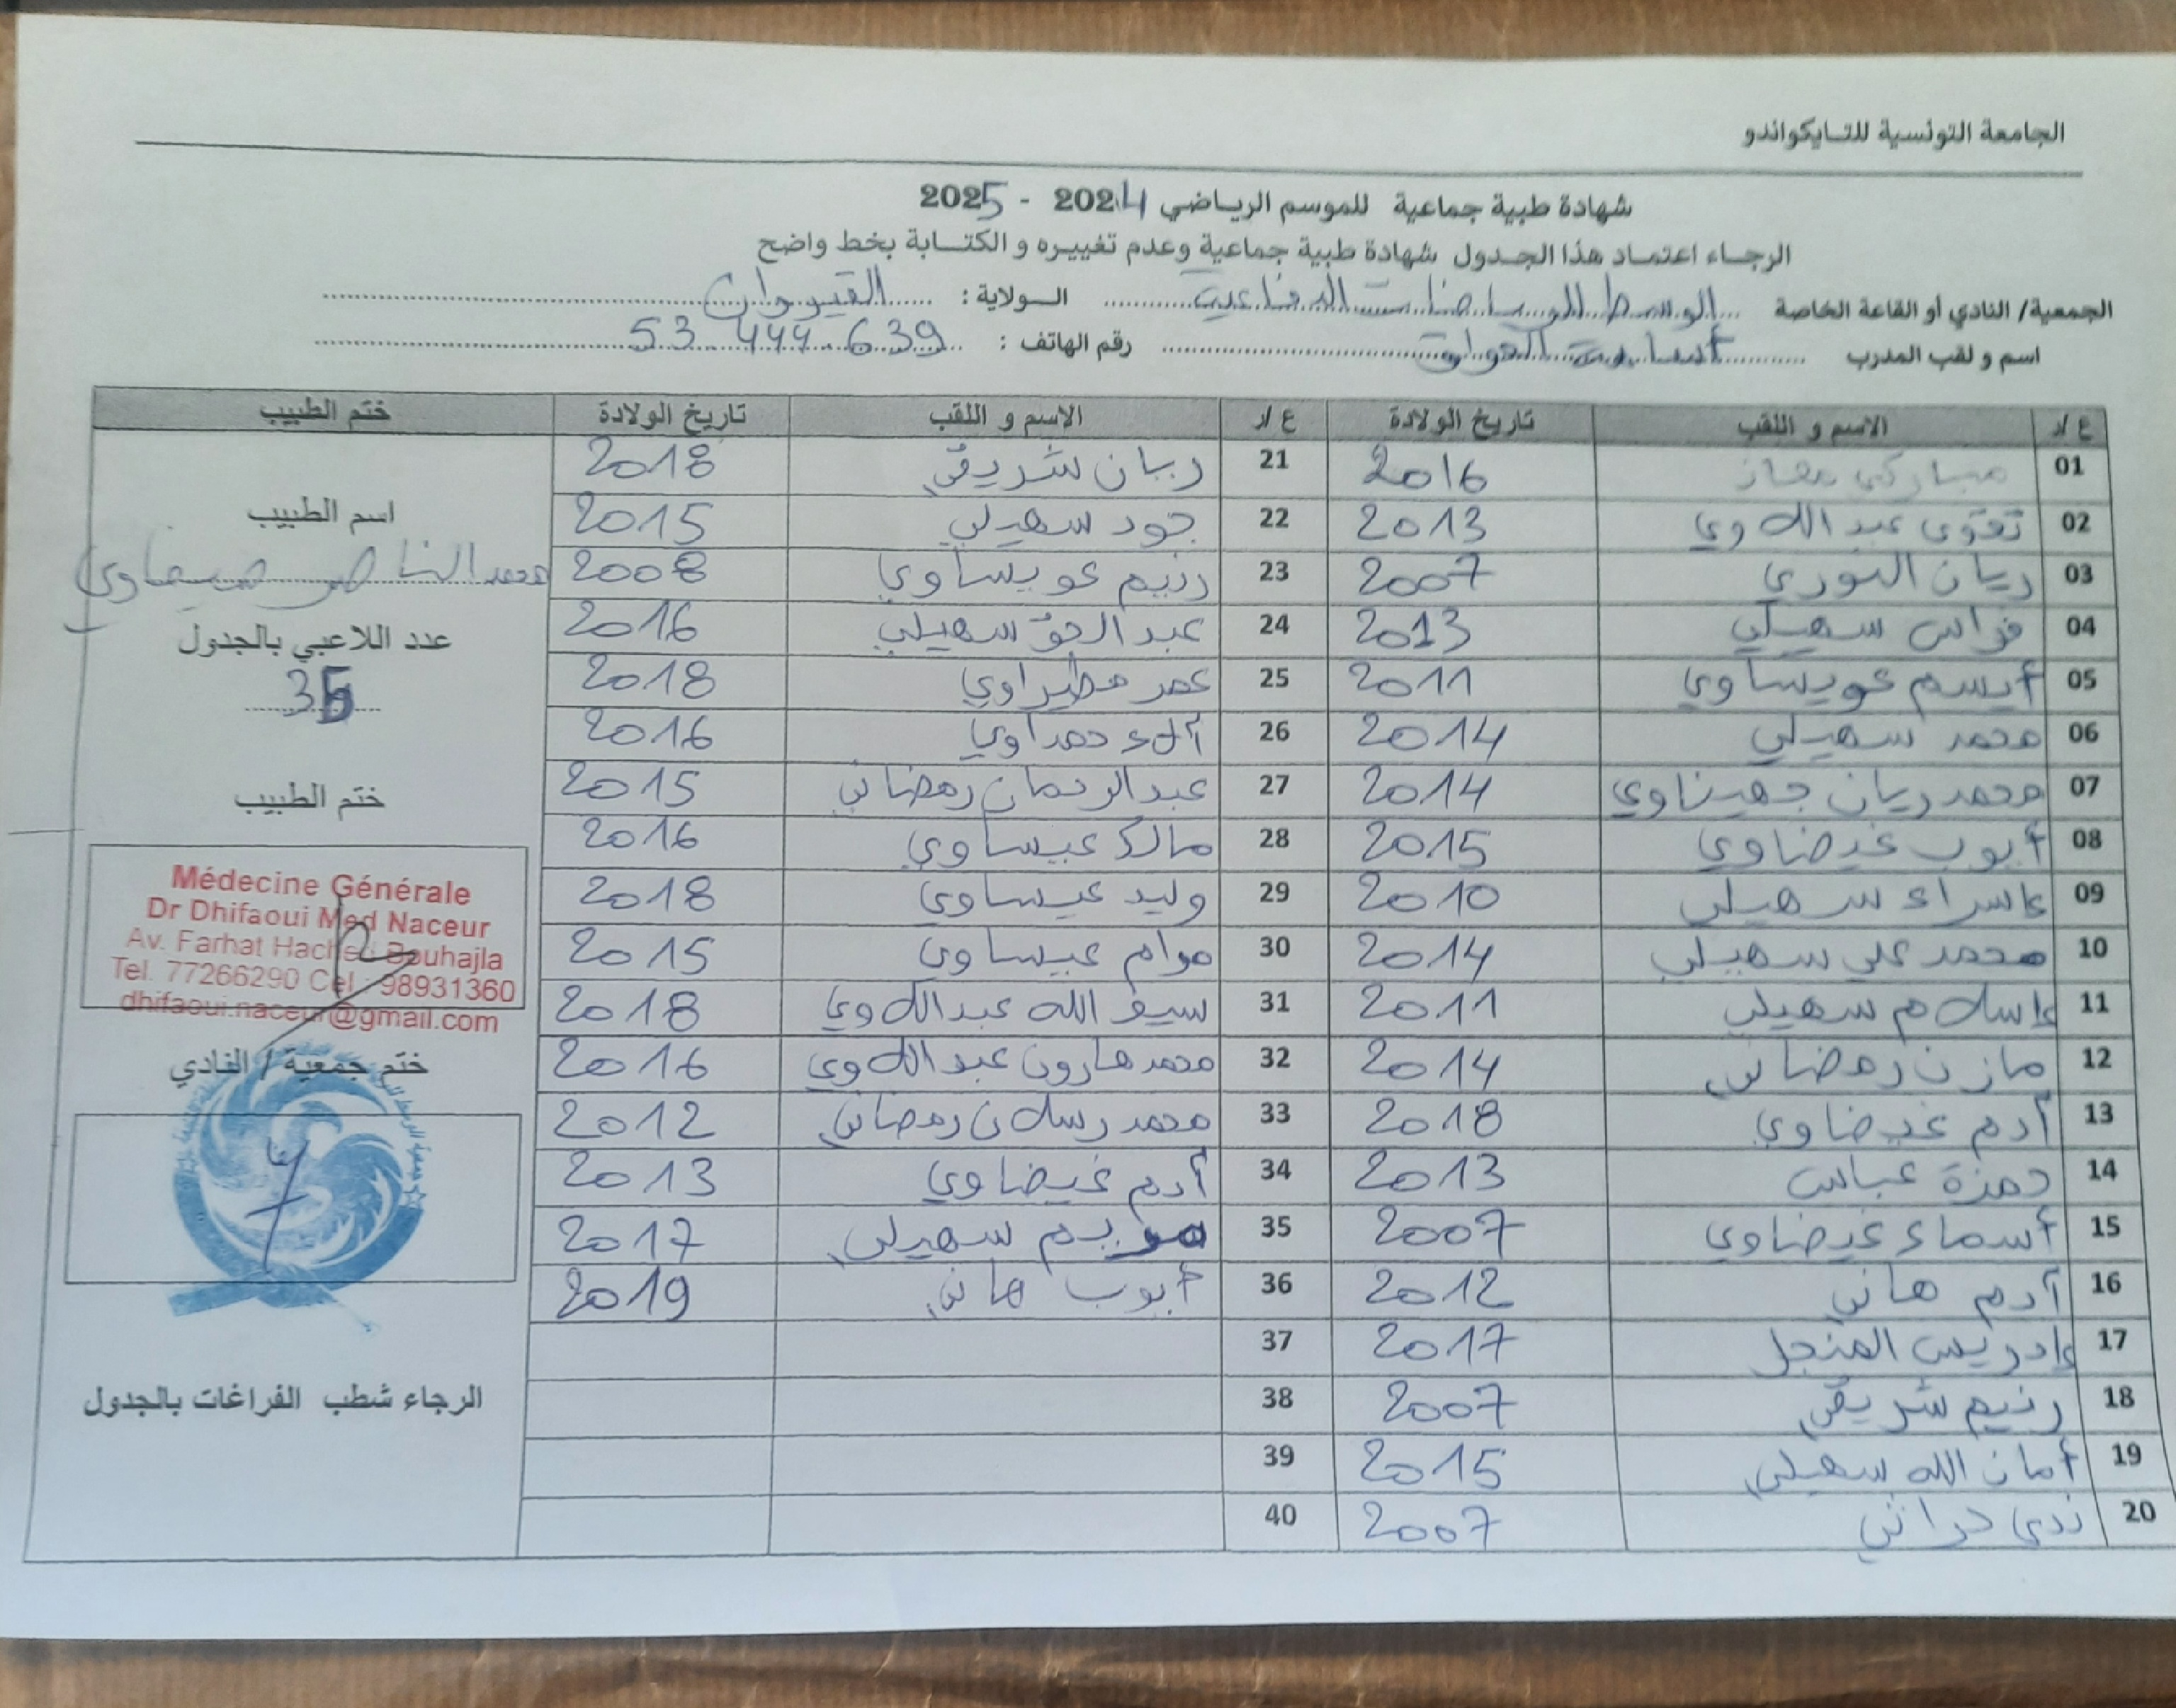 الجامعة التونسية للتـايكواندو
شهادة طبية جماعية للموسم الرياضي 2024 - 2025
الرجـاء اعتمـاد هذا الجـدول شهادة طبية جماعية وعدم تغييـره و الكتــابة بخط واضح
الجمعية/ النادي أو القاعة الخاصة الوسط للرياضات الدفاعية الـولاية : القيروان
اسم و لقب المدرب رقم الهاتف : 53 444 639
ع /د الاسم و اللقب تاريخ الولادة ع /د الاسم و اللقب تاريخ الولادة ختم الطبيب
01 مباركي معاز 2016 21 ريان شريقي 2018
02 تقوى عبد اللاوي 2013 22 جود سهيلي 2015
03 ريان النوري 2007 23 رنيم عويساوي 2008
04 فراس سهيلي 2013 24 عبد الحق سهيلي 2016
05 أيسم عويساوي 2011 25 عمر مطيراوي 2018
06 محمد سهيلي 2014 26 آلاء حمداوي 2016
07 محمد ريان جهيناوي 2014 27 عبد الرحمان رمضاني 2015
08 أيوب غيضاوي 2015 28 مالك عيساوي 2016
09 إسراء سهيلي 2010 29 وليد عيساوي 2018
10 محمد علي سهيلي 2014 30 مرام عيساوي 2015
11 إسلام سهيلي 2011 31 سيف الله عبد اللاوي 2018
12 مازن رمضاني 2014 32 محمد هارون عبد اللاوي 2016
13 آدم غيضاوي 2018 33 محمد رسلان رمضاني 2012
14 حمزة عباس 2013 34 آدم غيضاوي 2013
15 أسماء غيضاوي 2007 35 مريم سهيلي 2017
16 آدم هاني 2012 36 أيوب هاني 2019
17 إدريس المنجل 2017 37
18 رنيم شريقي 2007 38
19 أمان الله سهيلي 2015 39
20 ندى حراثي 2007 40
اسم الطبيب
محمد الناصر ضيفاوي
عدد اللاعبي بالجدول
36
ختم الطبيب
Médecine Générale
Dr Dhifaoui Med Naceur
Av. Farhat Hached Bouhajla
Tel. 77266290 Cel : 98931360
dhifaoui.naceur@gmail.com
ختم جمعية / النادي
الرجاء شطب الفراغات بالجدول